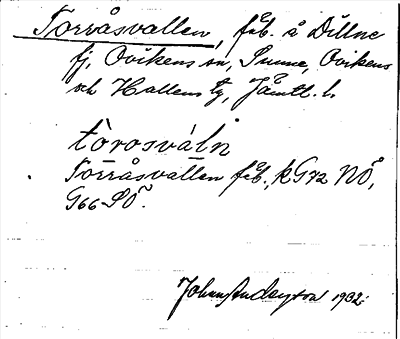 Torråsvallen, fäb. å Dillne
fj. Ovikens sn, Sunne, Ovikens
och Hallens tg, Jämtl. l.
tòrosváln
Torråsvallen fäb., k G72 NÖ,
G66 SÖ.
Johan Andersson 1932.